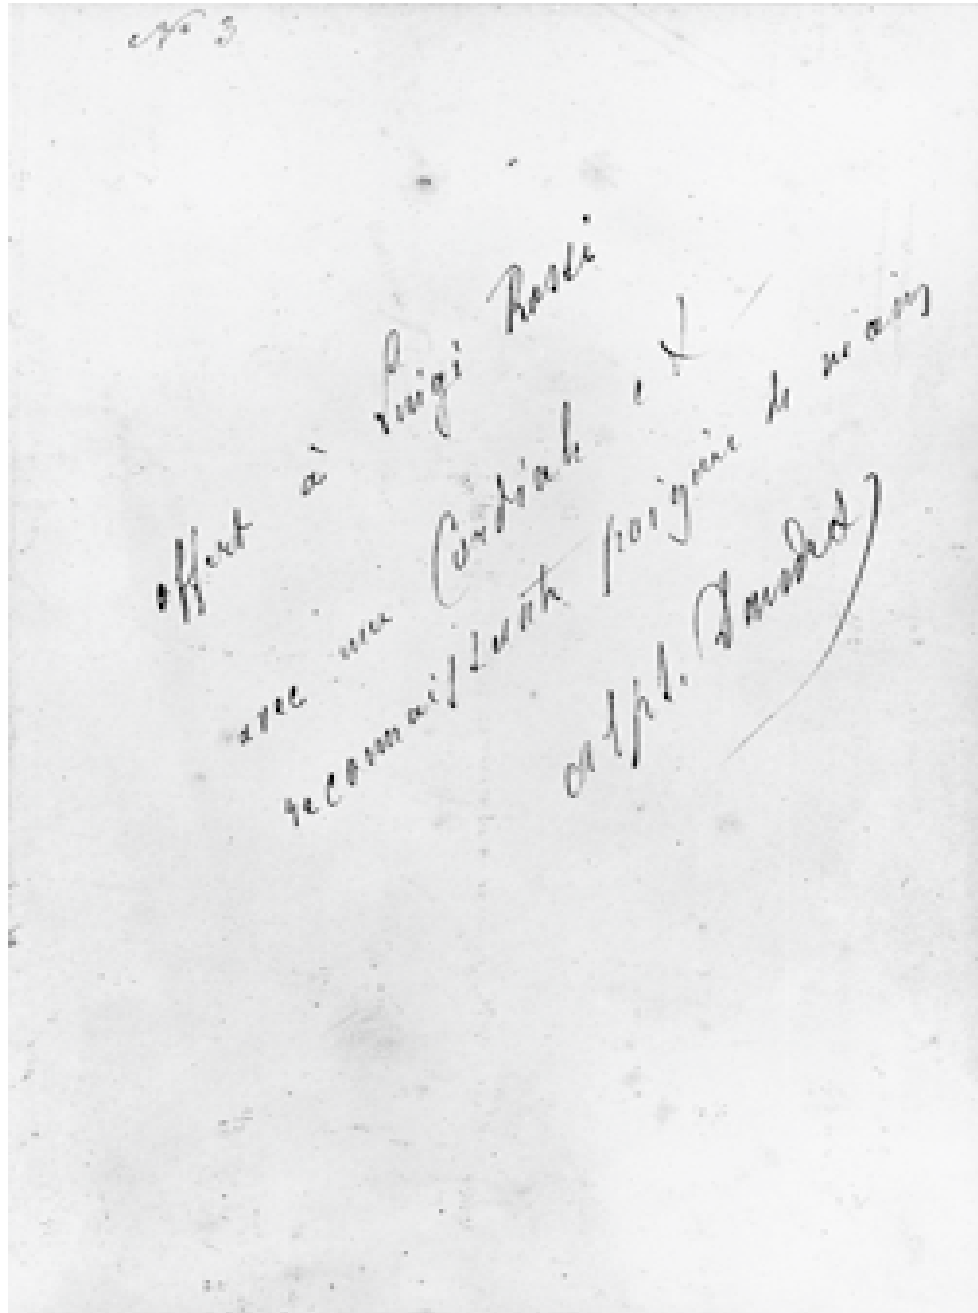 No 3
offert à Luigi Rossi
avec une Cordiale et
reconnaissante poignée de main
alph. Daudet